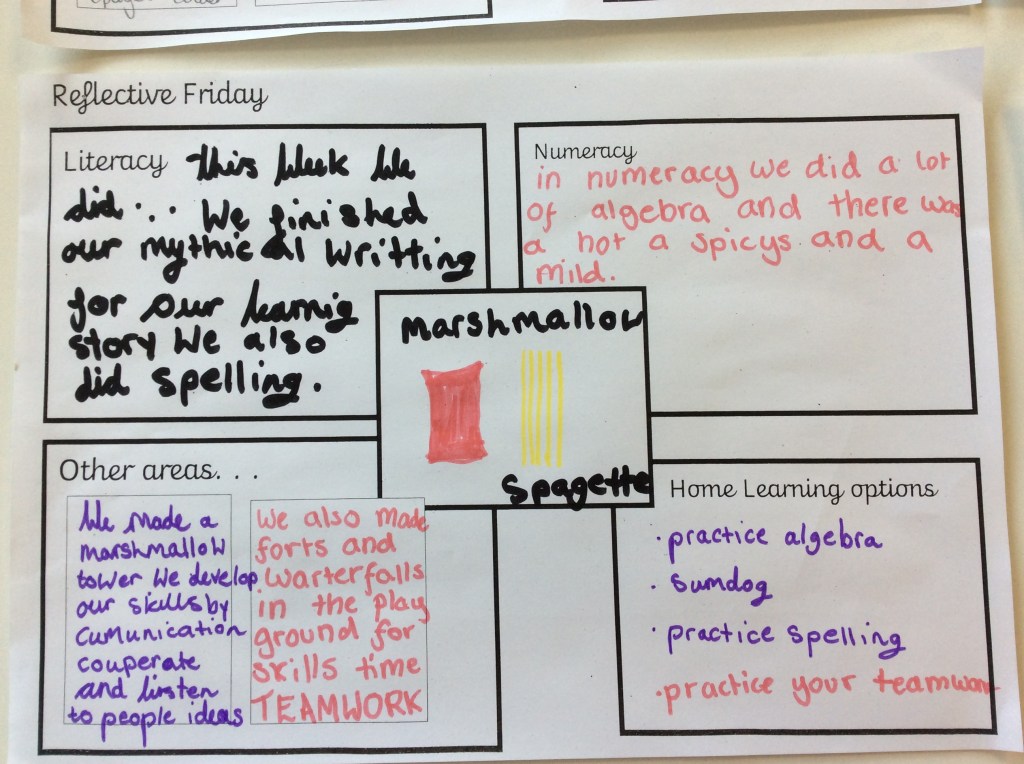 Reflective Friday
Literacy this week we
did... We finished
our mythical writting
for our learnig
story we also
did spelling.
Numeracy
in numeracy we did a lot
of algebra and there was
a hot a spicys and a
mild.
marshmallow
spagette
Other areas. . .
We made a
marshmallow
tower we develop
our skills by
cumunication
couperate
and linsten
to people ideas
We also made
forts and
warterfalls
in the play
ground for
skills time
TEAMWORK
Home Learning options
· practice algebra
· sumdog
· practice spelling
· practice your teamwork